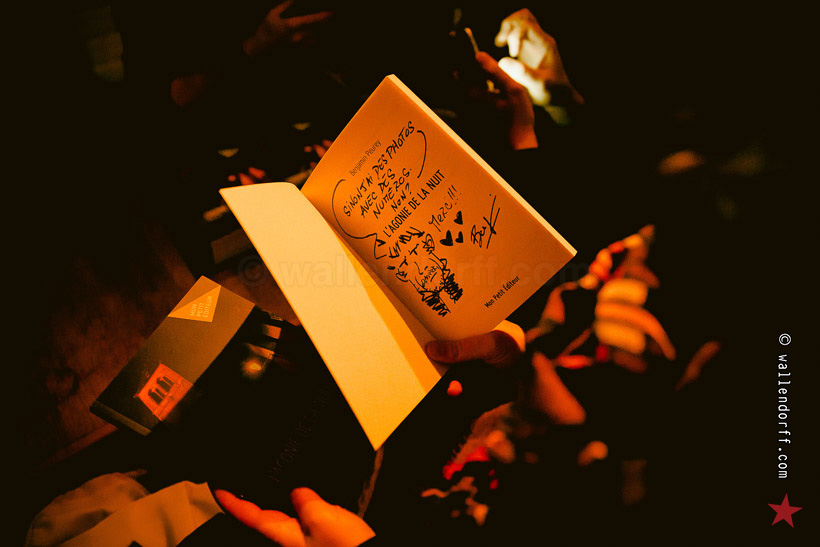 Benjamin Peurey
SINON J'AI DES PHOTOS
AVEC DES
NUMEROS.
NON?
L'AGONIE DE LA NUIT
MERCI!!!
Mon Petit Éditeur
MON
PETIT
ÉDITEUR
© wallendorff.com
© wallendorff.com